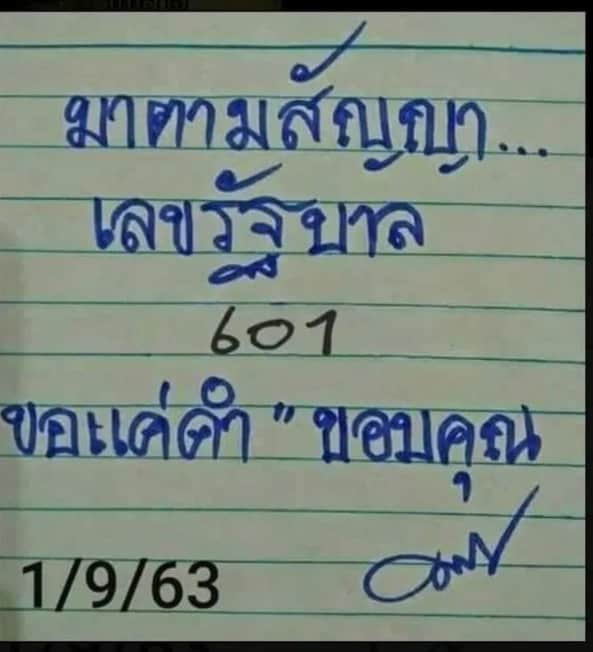 มาตามสัญญา...
เลขรัฐบาล
601
ขอแค่คำ "ขอบคุณ
1/9/63